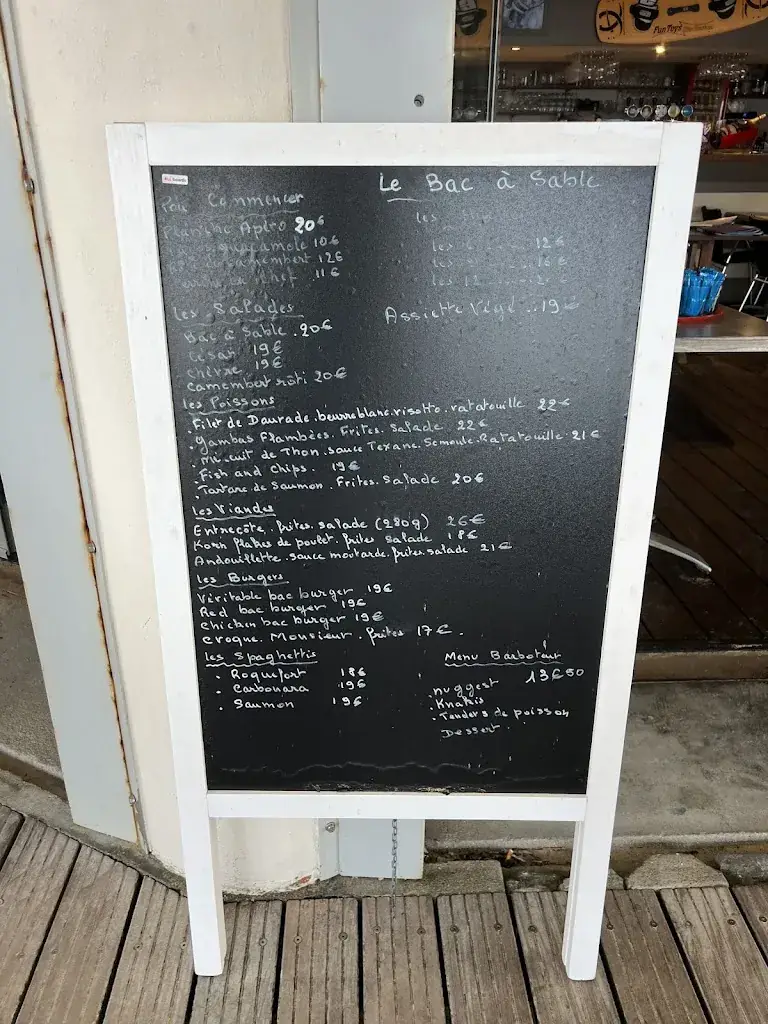 Le Bac à Sable
Pour Commencer
Planche Apéro 20€
guacamole 10€
camembert 12€
11€
les
les 12€
les 16€
les 12
Assiette Végé .. 19€
les Salades
Bac à Sable . 20€
César 19€
chèvre 19€
camembert rôti 20€
les Poissons
. Filet de Daurade . beurre blanc . risotto . ratatouille 22€
. Gambas Flambées . Frites . Salade 22€
. Mi-cuit de Thon . sauce Texane . Semoule . Ratatouille . 21€
. Fish and Chips . 19€
. Tartare de Saumon . Frites . Salade 20€
les Viandes
Entrecôte . frites . salade (280g) 26€
Korn flakes de poulet . frites salade 18€
Andouillette . sauce moutarde . frites . salade 21€
les Burgers
Véritable bac burger 19€
Red bac burger 19€
Chicken bac burger 19€
Croque . Monsieur . frites 17€ .
les Spaghettis
. Roquefort 18€
. Carbonara 19€
. Saumon 19€
Menu Barboteur
13€50
. nuggest
. Knakis
. Tenders de poisson
Dessert .
FunToys